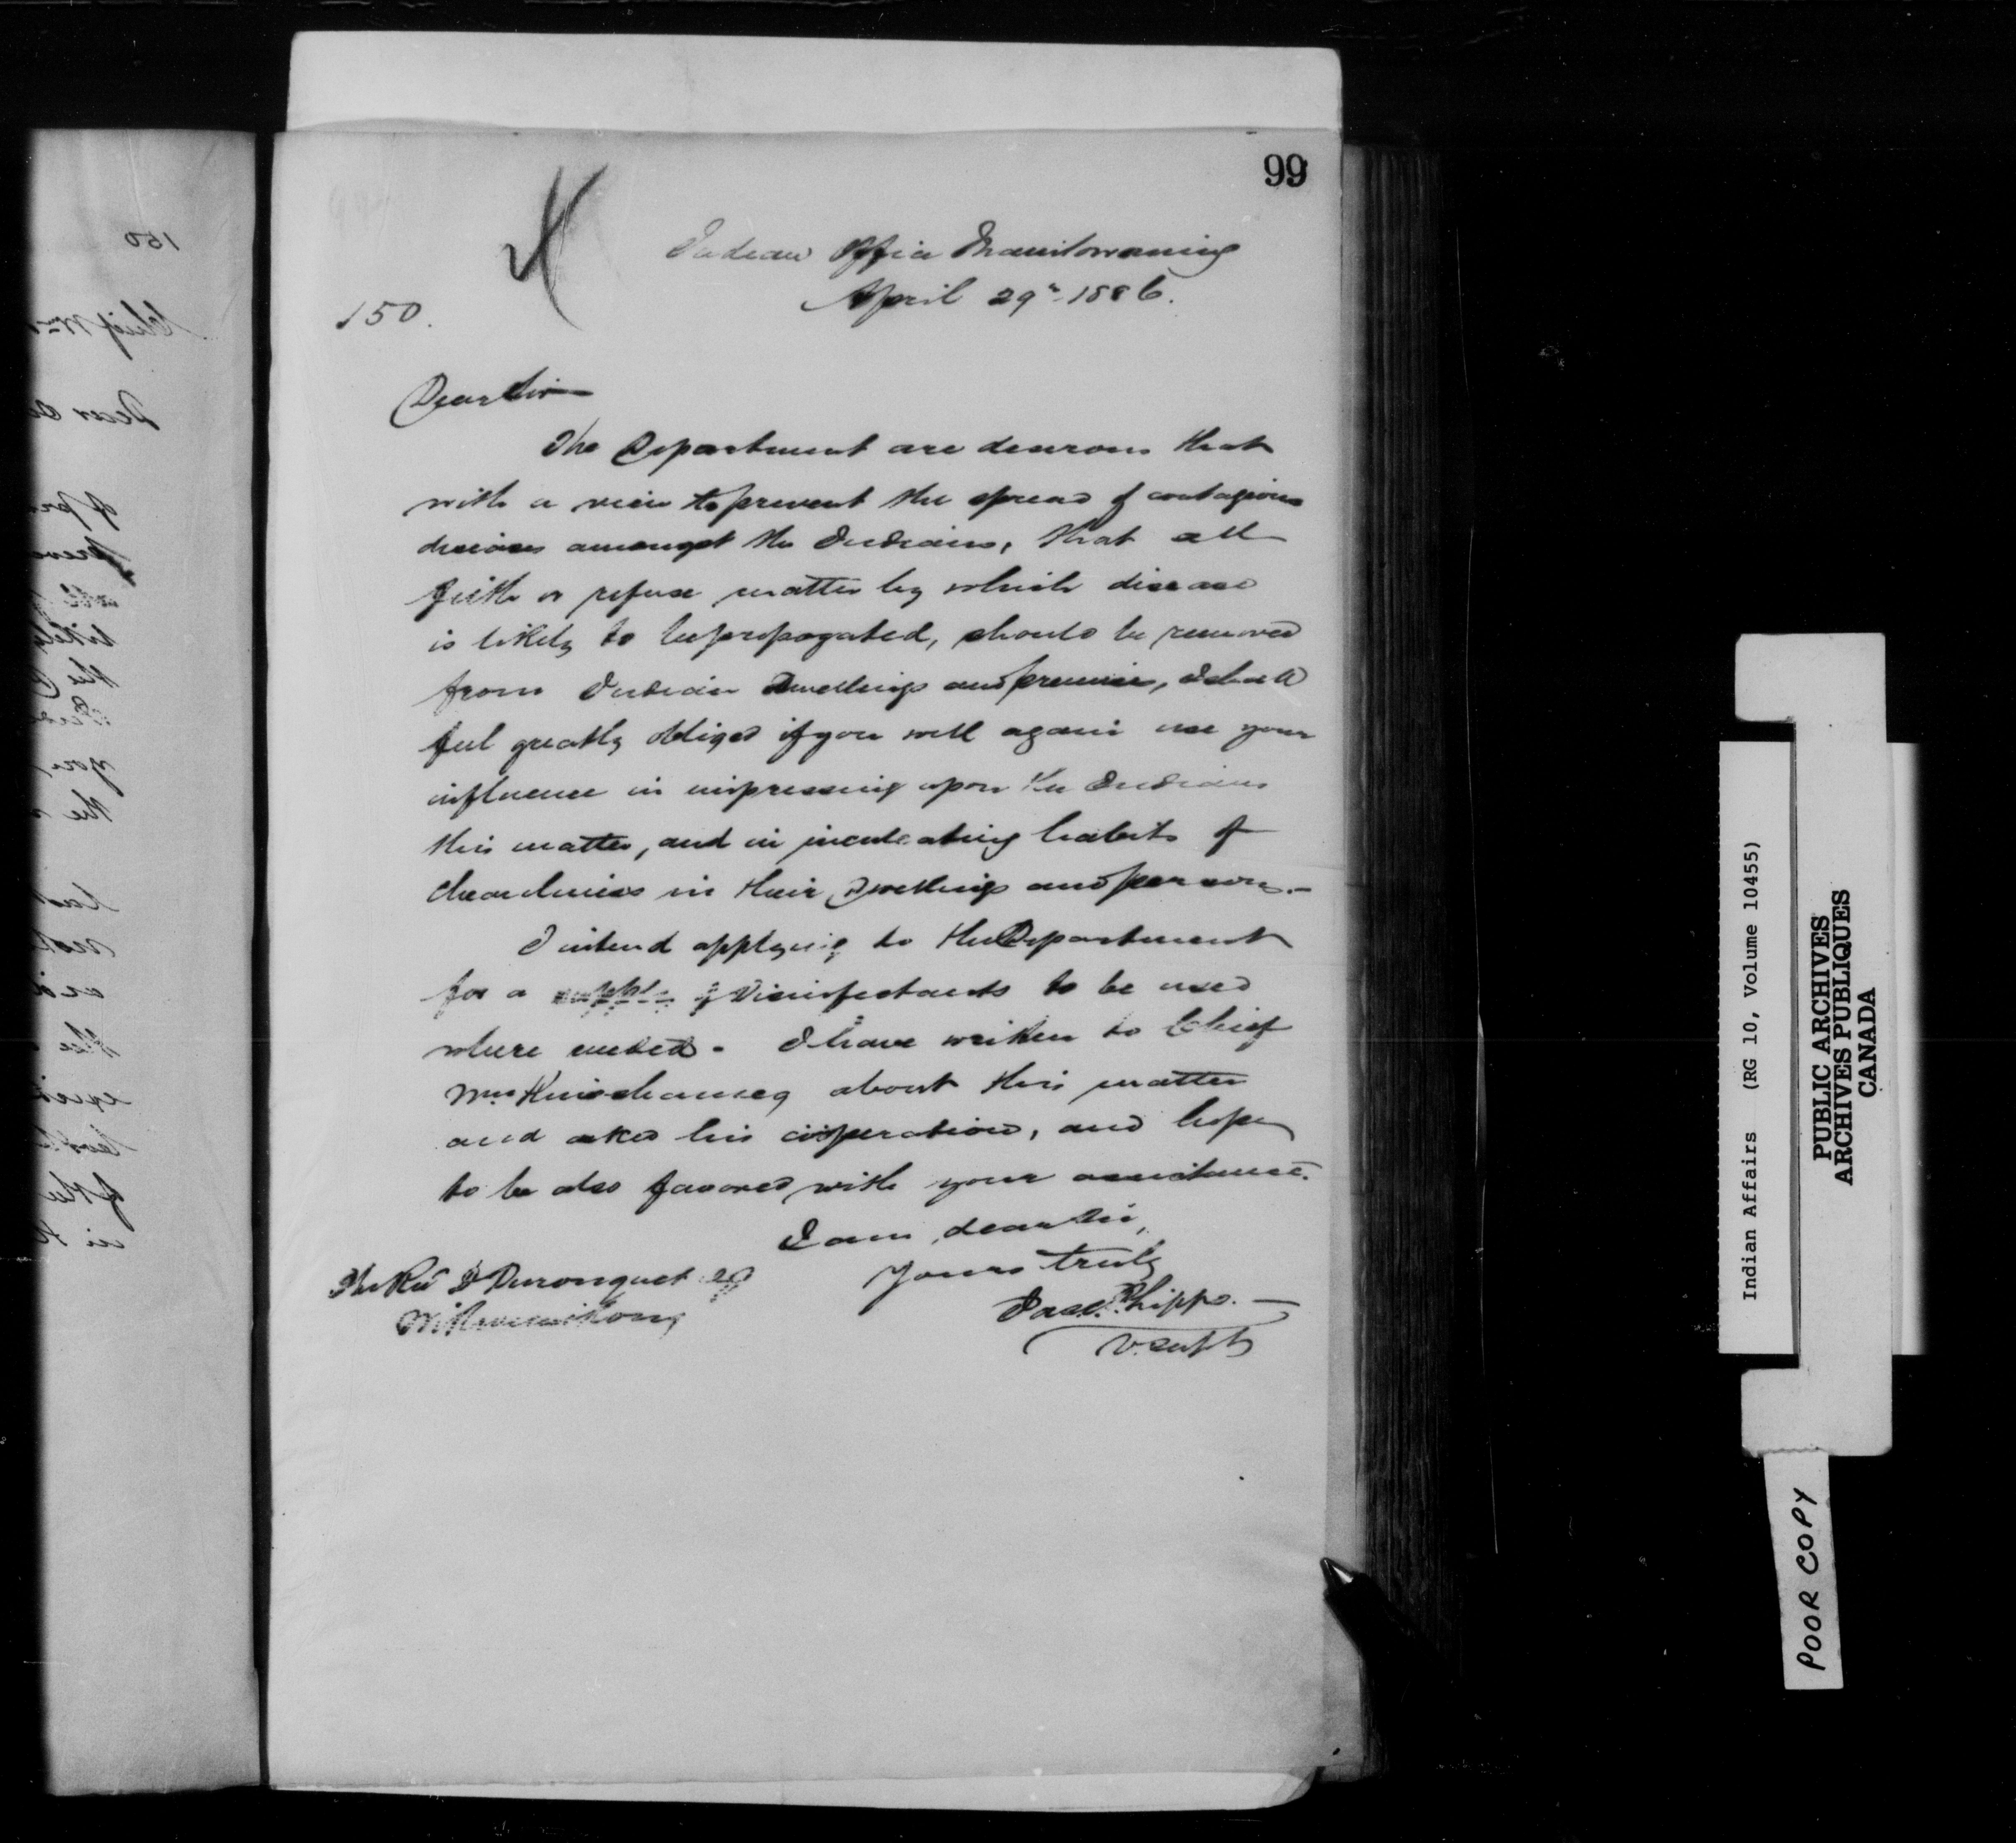 99
Indian Office Manitowaning
April 29th 1886.
150.
Dear Sir
The Department are desirous that
with a view to prevent the spread of contagious
diseases amongst the Indians, that all
filth or refuse matter by which disease
is likely to be propogated, should be removed
from Indian Dwellings and premises, I shall
feel greatly obliged if you will again use your
influence in impressing upon the Indians
this matter, and in inculcating habits of
cleanliness in their Dwellings and persons.—
I intend applying to the Department
for a supply of Disinfectants to be used
where needed. I have written to Chief
Wm about this matter
and asked his cooperation, and hope
to be also favored with your assistance.
I am, dear Sir,
Yours truly
Jas. C. Phipps.
V. Supt
The Revd D Duronquet
Wikwemikong
150
Chief Wm
Dear
Indian Affairs (RG 10, Volume 10455)
PUBLIC ARCHIVES
ARCHIVES PUBLIQUES
CANADA
POOR COPY